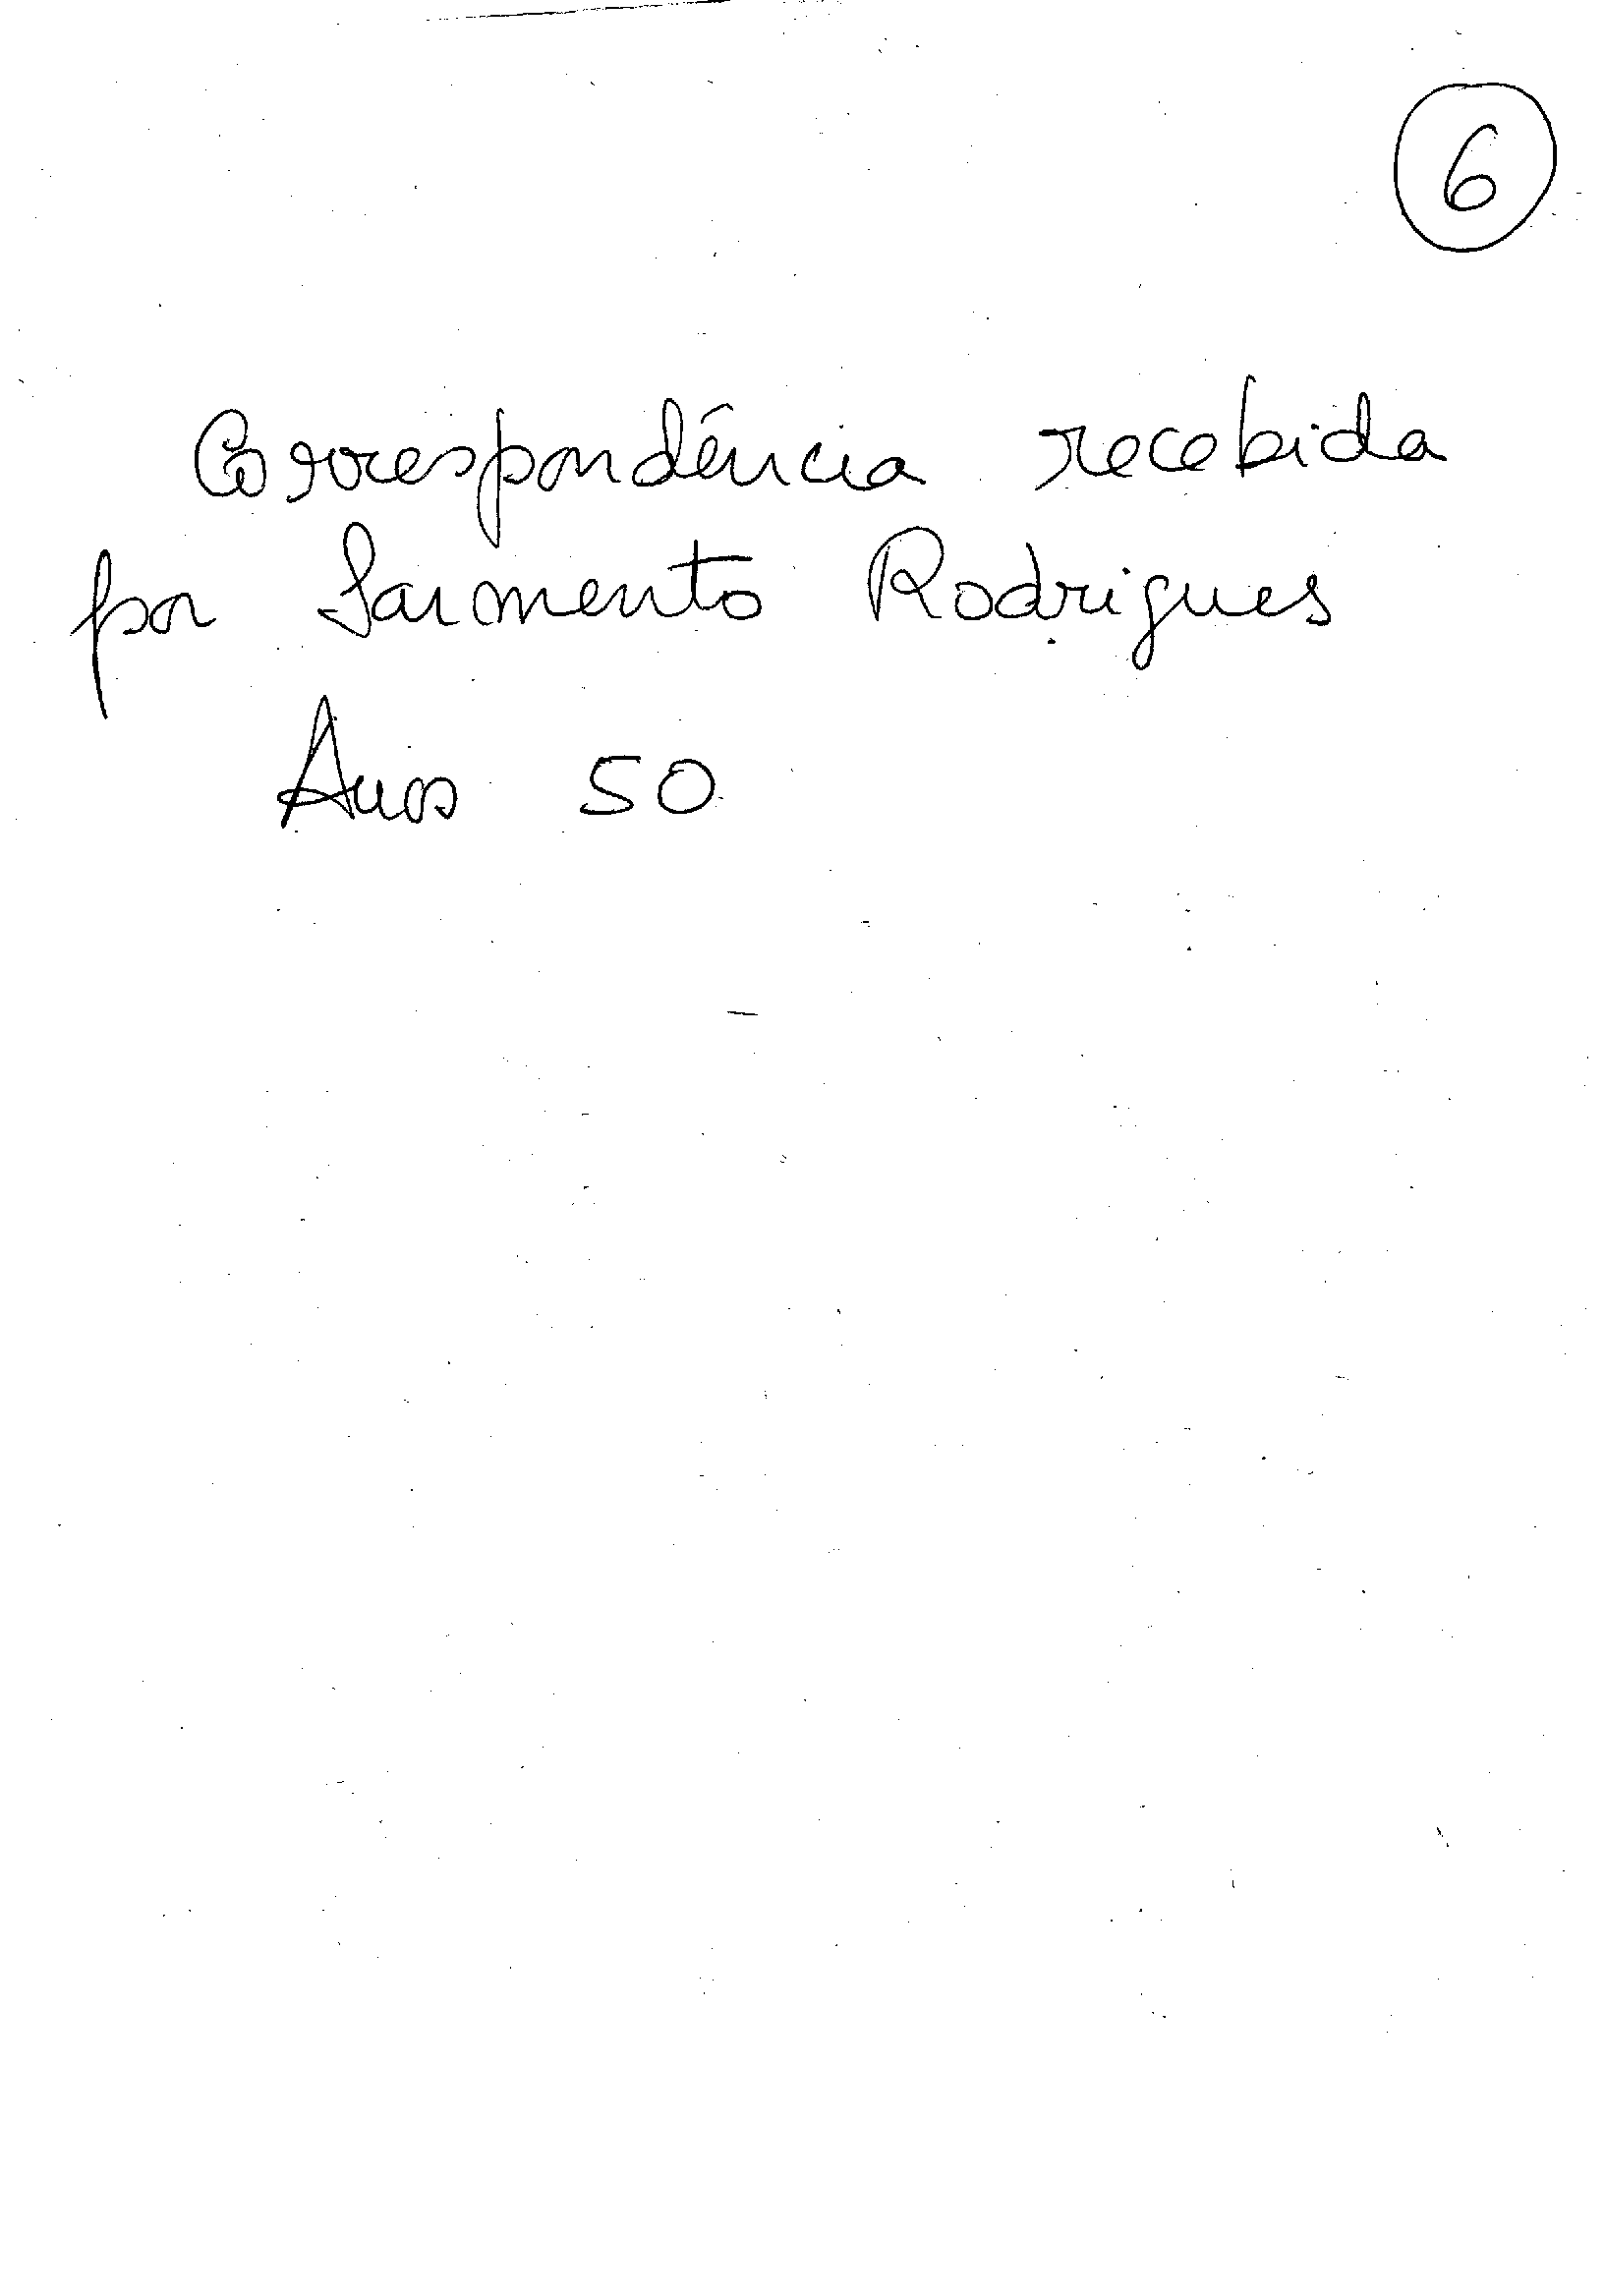 6
Correspondência recebida
por Sarmento Rodrigues
Anos 50